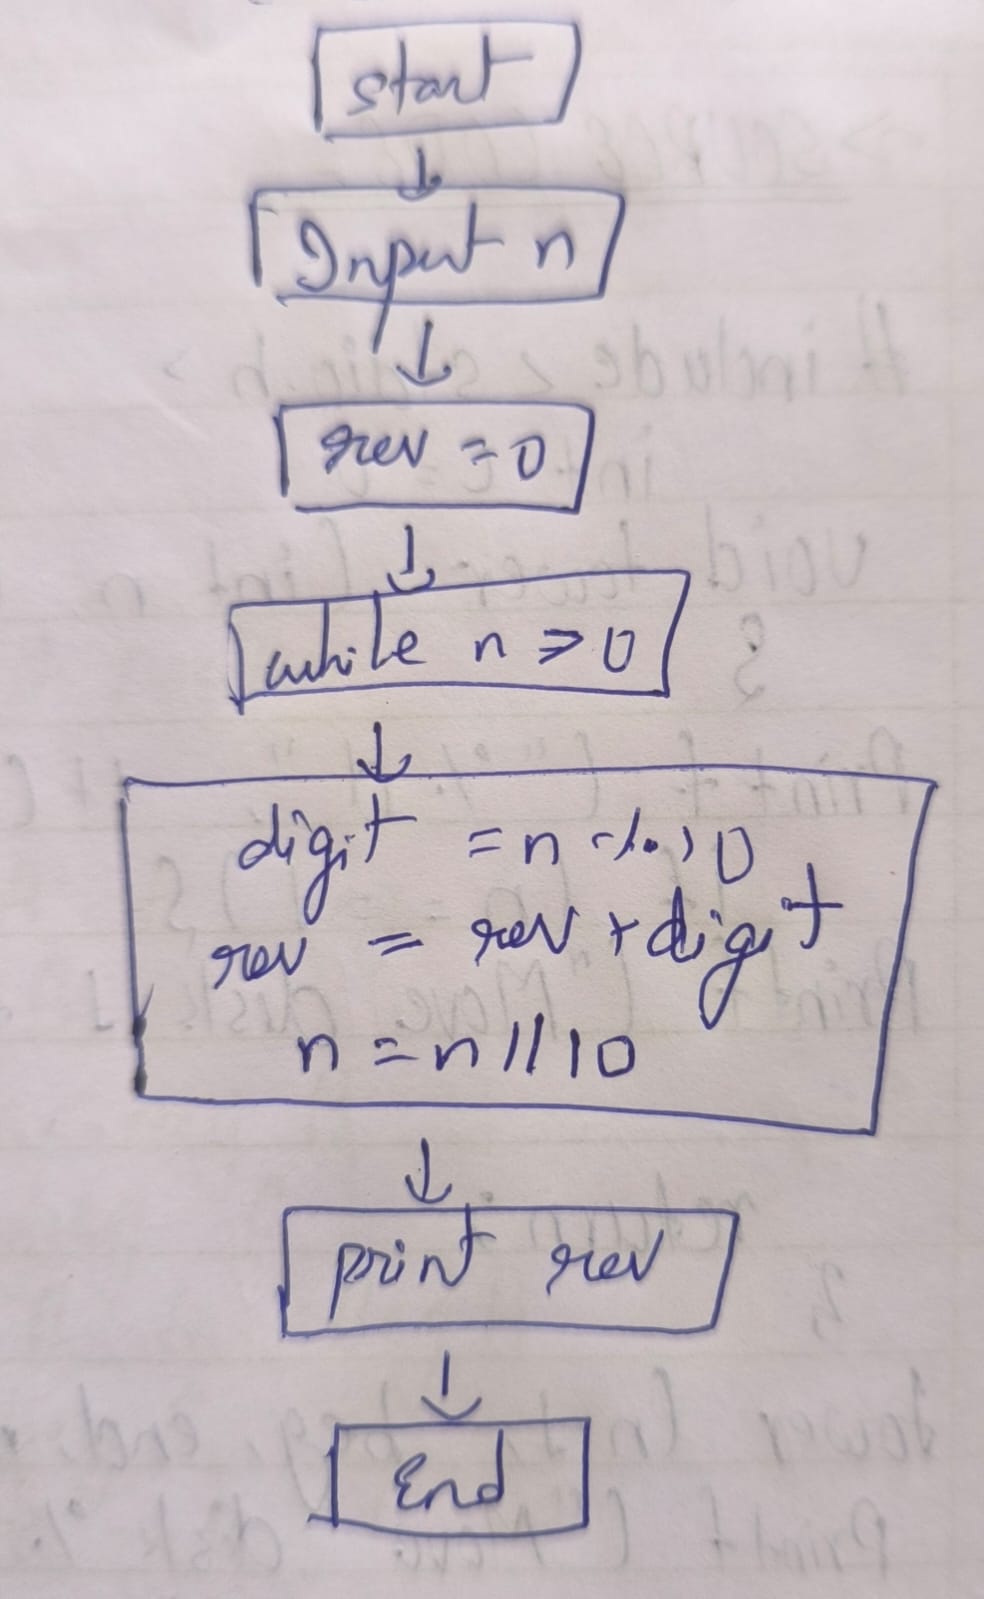 start
Input n
rev = 0
while n > 0
digit = n % 10
rev = rev + digit
n = n // 10
print rev
End